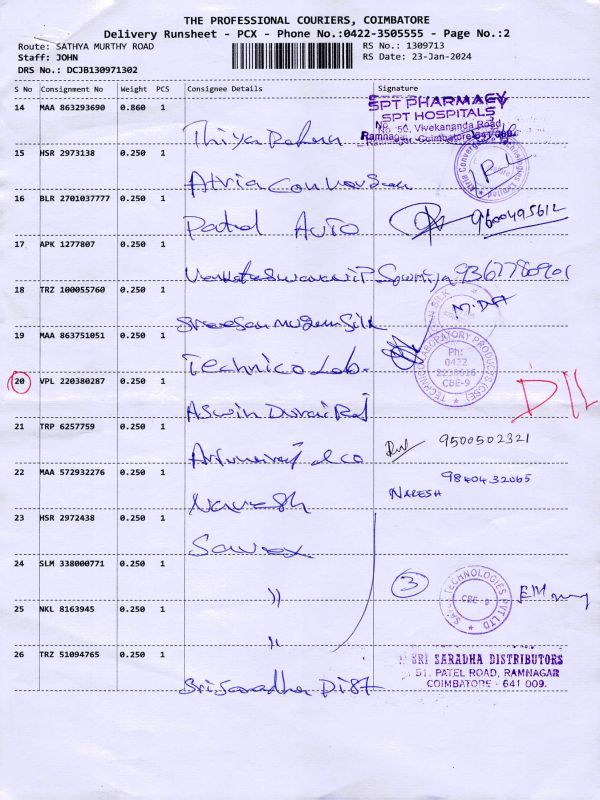 THE PROFESSIONAL COURIERS, COIMBATORE
Delivery Runsheet - PCX - Phone No.:0422-3505555 - Page No.:2
Route: SATHYA MURTHY ROAD
RS No.: 1309713
Staff: JOHN
RS Date: 23-Jan-2024
DRS No.: DCJB130971302
S No Consignment No Weight PCS Consignee Details Signature
14 MAA 863293690 0.860 1
SPT PHARMACY
SPT HOSPITALS
No. 50, Vivekananda Road,
Ramnagar, Coimbatore-641 009.
15 HSR 2973138 0.250 1
Atria
16 BLR 2701037777 0.250 1
Patel Auto 9600495612
17 APK 1277807 0.250 1
18 TRZ 100055760 0.250 1
SILK
19 MAA 863751051 0.250 1
Technico Lab.
TECHNICO LABORATORY PRODUCTS (CBE)
Ph:
0422
CBE-9
20 VPL 220380287 0.250 1
Aswin Durai Raj
21 TRP 6257759 0.250 1
9500502321
22 MAA 572932276 0.250 1
Naresh
9840432065
NARESH
23 HSR 2972438 0.250 1
24 SLM 338000771 0.250 1
〃
3
TECHNOLOGIES PVT LTD
CBE-9
25 NKL 8163945 0.250 1
〃
26 TRZ 51094765 0.250 1
Sri Saradha Dist
SRI SARADHA DISTRIBUTORS
51, PATEL ROAD, RAMNAGAR
COIMBATORE - 641 009.